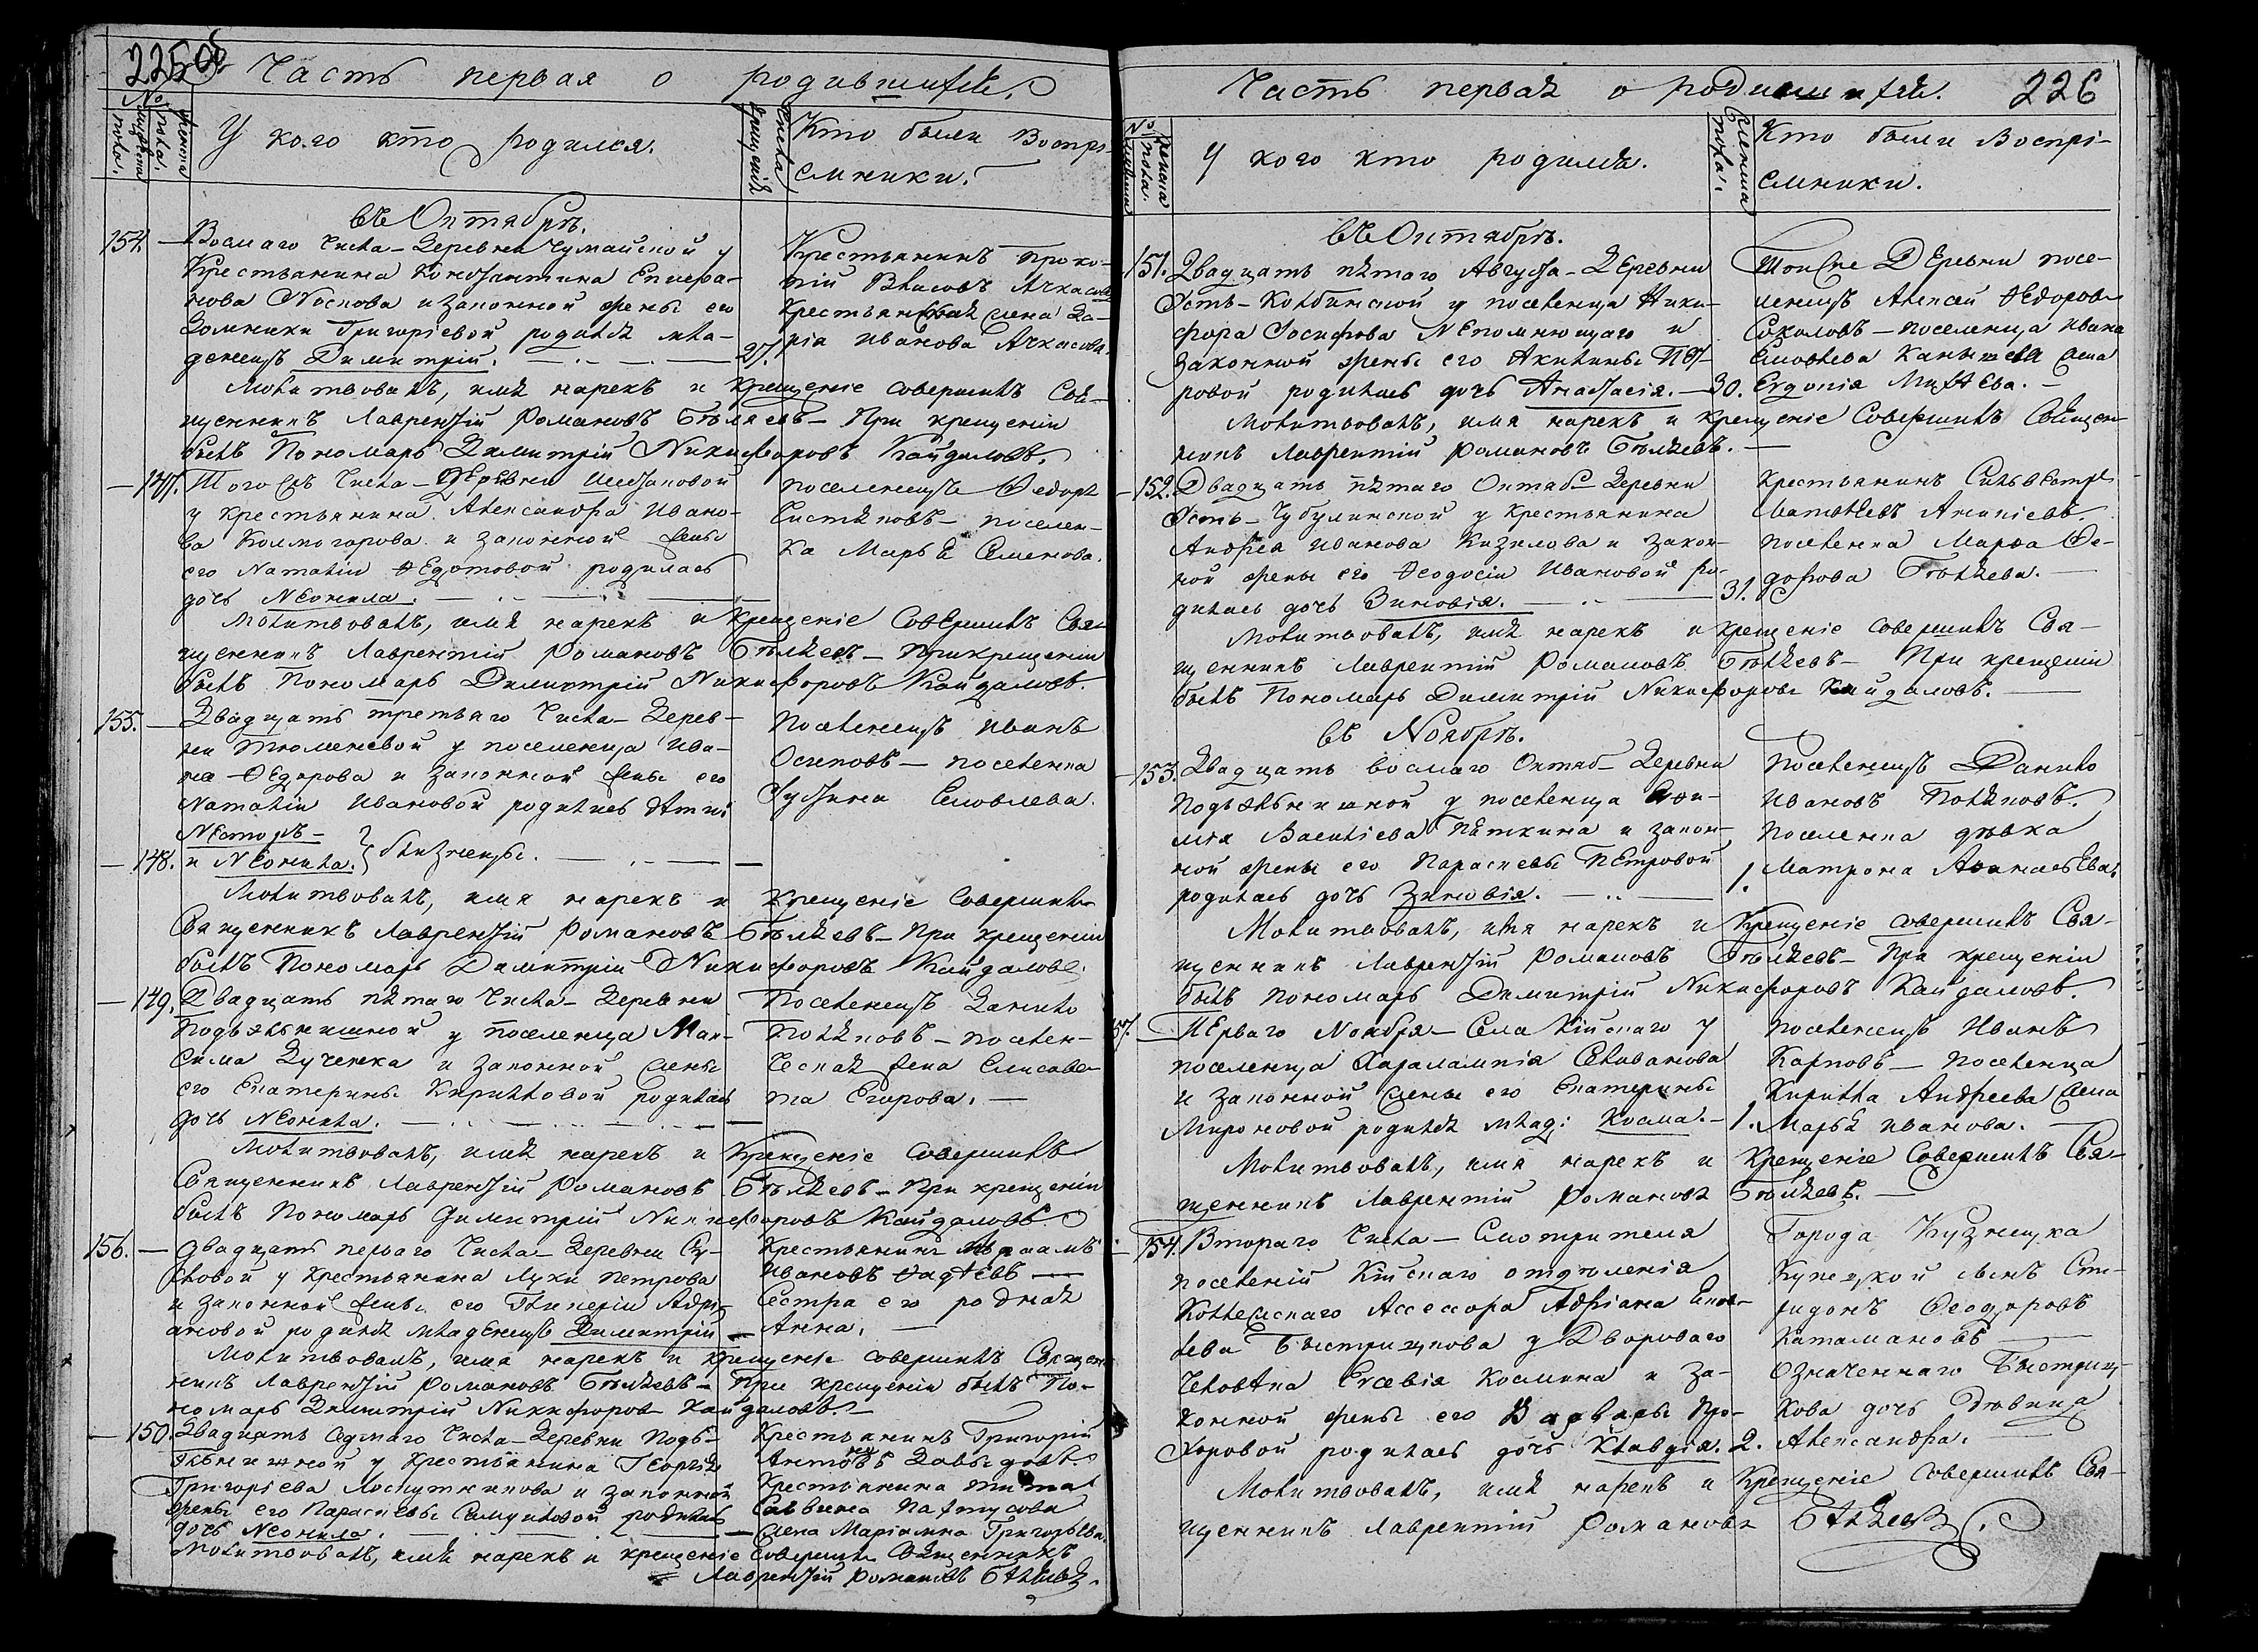 225об
Часть первая о родившихся.
№ мужеска пола.
женска пола.
У кого кто родился.
Числа крещенія
Кто были Воспрі-
емники.
въ Октябрѣ.
154. Восмаго Числа – Деревни Чумайской у
Крестьянина Константина Епифа-
нова Носкова и законной жены его
Домники Григоріевой родился мла-
денецъ Димитрій. 27.
Крестьянинъ Проко-
пій Власовъ Ачкасовъ
Крестьянская жена Да-
рія Иванова Ачкасова.
Молитвовалъ, имя нарекъ и крещеніе совершилъ Свя-
щенникъ Лаврентій Романовъ Бѣляевъ – При крещеніи
былъ Пономарь Димитрій Никифоровъ Кайдаловъ.
147. Того жъ Числа – Деревни
у крестьянина Александра Ивано-
ва Колмогорова и законной жены
его Наталіи Федотовой родилась
дочь Неонила.
поселенецъ Федоръ
Чистяковъ – поселен-
ка Марья Семенова.
Молитвовалъ, имя нарекъ и крещеніе совершилъ Свя-
щенникъ Лаврентій Романовъ Бѣляевъ – При крещеніи
былъ Пономарь Димитрій Никифоровъ Кайдаловъ.
155. Двадцать третьяго Числа – Дерев-
ни Тюменевой у поселенца Ива-
на Федорова и законной жены его
Наталіи Ивановой родились дѣти:
Несторъ –
148. и Неонила. } близнецы.
Поселенецъ Иванъ
Осиповъ – поселенка
Устинья Яковлева.
Молитвовалъ, имя нарекъ и Крещеніе Совершилъ
Священникъ Лаврентій Романовъ Бѣляевъ – При крещеніи
былъ Пономарь Димитрій Никифоровъ Кайдаловъ.
149. Двадцать пятаго Числа – Деревни
Подъельнишной у поселенца Мак-
сима Дученка и законной жены
его Екатерины Кирилловой родилась
дочь Неонила.
Поселенецъ Данило
Поляковъ – поселен-
ческая жена Елисаве-
та Егорова.
Молитвовалъ, имя нарекъ и Крещеніе совершилъ
Священникъ Лаврентій Романовъ Бѣляевъ – При крещеніи
былъ Пономарь Димитрій Никифоровъ Кайдаловъ
156. Двадцать перваго Числа – Деревни Су-
словой у крестьянина Луки Петрова
и законной жены его Гликеріи Адрі-
ановой родился младенецъ Димитрій
Крестьянинъ
Ивановъ Фадѣевъ
Сестра его родная
Анна.
Молитвовалъ, имя нарекъ и крещеніе совершилъ Священ-
никъ Лаврентій Романовъ Бѣляевъ – При крещеніи былъ По-
номарь Димитрій Никифоровъ Кайдаловъ.
150. Двадцать седмаго Числа – Деревни Подъ-
ельнишной у Крестьянина Георгія
Григоріева Лоскутникова и законной
жены его Параскевы Самуиловой родилась
дочь Неонила.
Крестьянинъ Григорій
Антоновъ Давыдовъ
Крестьянина Тита
Саввина Пахтусова
жена Маріамна Григорьева.
Молитвовалъ, имя нарекъ и крещеніе совершилъ Священникъ
Лаврентій Романовъ Бѣляевъ.
Часть первая о родившихся. 226
№
женска пола.
У кого кто родился.
Кто были Воспрі-
емники.
въ Октябрѣ.
151. Двадцать пятаго Августа – Деревни
Усть-Колбинской у поселенца Ники-
фора Іосифова Непомнющаго и
законной жены его Акилины Пет-
ровой родилась дочь Анастасія. – 30.
Той же Деревни посе-
ленецъ Алексѣй Федоровъ
Соколовъ – поселенца Ивана
жена
Евдокія Михѣева.
Молитвовалъ, имя нарекъ и крещеніе Совершилъ Священ-
никъ Лаврентій Романовъ Бѣляевъ.
152. Двадцать пятаго Октяб. Деревни
Усть-Чубулинской у крестьянина
Андрея Иванова Кизилова и закон-
ной жены его Феодосіи Ивановой ро-
дилась дочь Зиновія. 31.
крестьянинъ Сильвестръ
Матвѣевъ Ананіевъ.
поселенка Марѳа Фе-
дорова Бѣляева.
Молитвовалъ, имя нарекъ и крещеніе совершилъ Свя-
щенникъ Лаврентій Романовъ Бѣляевъ – При крещеніи
былъ Пономарь Димитрій Никифоровъ Кайдаловъ.
въ Ноябрѣ.
153. Двадцать восмаго Октяб – Деревни
Подъельнишной у поселенца
Васильева Пяткина и закон-
ной жены его Параскевы Петровой
родилась дочь Зиновія. 1.
Поселенецъ Данило
Ивановъ Поляковъ.
поселенка дѣвка
Матрона Афанасьева.
Молитвовалъ, имя нарекъ и Крещеніе совершилъ Свя-
щенникъ Лаврентій Романовъ Бѣляевъ – При крещеніи
былъ Пономарь Димитрій Никифоровъ Кайдаловъ.
157. Перваго Ноября – Села Кійскаго у
поселенца Харалампія Селиванова
и законной жены его Екатерины
Мироновой родился млад: Косма. – 1.
поселенецъ Иванъ
Карповъ – поселенца
Кирилла Андреева жена
Марья Иванова.
Молитвовалъ, имя нарекъ и Крещеніе Совершилъ Свя-
щенникъ Лаврентій Романовъ Бѣляевъ.
154. Втораго Числа – Смотрителя
поселеній Кійскаго отдѣленія
Коллежскаго Ассесора Адріана Яков-
лева Быстрицкова у Двороваго
Человѣка Евсевія Космина и за-
конной жены его Варвары Про-
хоровой родилась дочь Клавдія. 2.
Города Кузнецка
Купецкой сынъ Спи-
ридонъ Феодоровъ
Катамановъ
Означеннаго Быстриц-
кова дочь дѣвица
Александра.
Молитвовалъ, имя нарекъ и Крещеніе Совершилъ Свя-
щенникъ Лаврентій Романовъ Бѣляевъ.